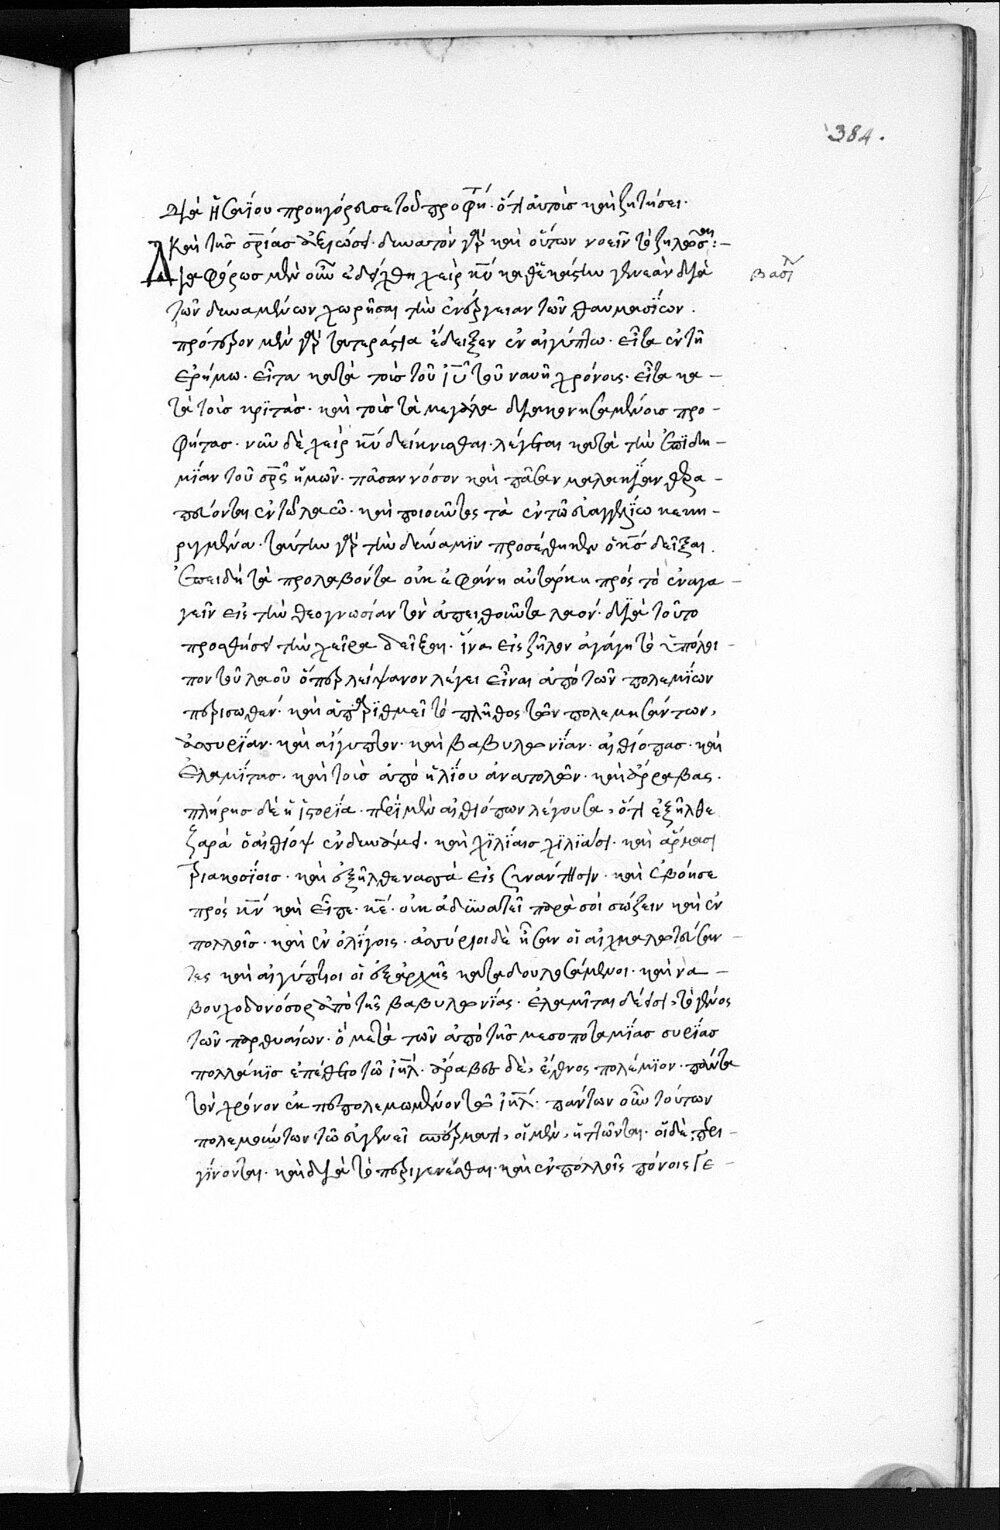 384.
διὰ ἡσαΐου προηγόρευσε τοῦ προφή· ὅτι αὐτοὶς καὶ ζητήσει·
καὶ τῆς σρίας ἀξιώσει· δυνατὸν γὰρ καὶ οὕτων νοεῖν τὸ ζηλῶσαι:–
Διαφόρως μὲν οὖν ἐδείχθη χεὶρ κυ καθ' ἑκάστην γενεὰν διὰ
βασι
τῶν δυναμένων χωρῆσαι τὴν ἐνέργειαν τῶν θαυμασίων.
πρότερον μὲν γὰρ τὰ τεράστια ἔδειξεν ἐν αἰγύπτω· εἶτα ἐν τῆ
ἐρήμω· εἶτα κατὰ τοὺς τοῦ ιυ τοῦ ναυῆ χρόνους· εἶτα κα–
τὰ τοὺς κριτάς· καὶ τοὺς τὰ μεγάλα διακονησαμένους προ–
φήτας· νῦν δὲ χεὶρ κυ δείκνυσθαι λέγεται κατὰ τὴν ἐπιδη–
μίαν τοῦ σρς ἡμῶν· πᾶσαν νόσον καὶ πᾶσαν μαλακίαν θερα–
πεύοντος ἐν τῶ λαῶ· καὶ ποιοῦντος τὰ ἐν τῶ εὐαγγελίω κεκη–
ρυγμένα· ταύτην γὰρ τὴν δύναμιν προσέθηκεν ὁ κς δεῖξαι.
Ἐπειδὴ τὰ προλαβόντα οὐκ ἐφάνη αὐτάρκη πρὸς τὸ ἐναγα–
γεῖν εἰς τὴν θεογνωσίαν τὸν ἀπειθοῦντα λαόν· διὰ τοῦτο
προσθήσει τὴν χεῖρα δεῖξαι· ἵνα εἰς ζῆλον ἀγάγη τὸ ὑπόλοι–
πον τοῦ λαοῦ ὅπερ λείψανον λέγει εἶναι ἀπὸ τῶν πολεμίων
περισωθέν· καὶ ἀπαριθμεῖ τὸ πλῆθος τῶν πολεμησάντων,
ἀσσυρίαν· καὶ αἴγυπτον· καὶ βαβυλωνίαν· αἰθίοπας· καὶ
ἐλαμίτας· καὶ τοὺς ἀπὸ ἡλίου ἀνατολῶν· καὶ ἄρραβας.
πλήρης δὲ ἡ ἱστορία· περὶ μὲν αἰθιόπων λέγουσα, ὅτι ἐξῆλθε
ζαρὰ ὁ αἰθίοψ ἐν δυνάμει· καὶ χιλίαις χιλιάσι· καὶ ἅρμασι
τριακοσίοις· καὶ ἐξῆλθεν ἀσὰ εἰς συνάντησιν· καὶ ἐβόησε
πρὸς κν καὶ εἶπε· κε· οὐκ ἀδυνατεῖ παρὰ σοὶ σώζειν καὶ ἐν
πολλοῖς· καὶ ἐν ὀλίγοις· ἀσσύριοι δὲ ἦσαν οἱ αἰχμαλωτεύσαν–
τες καὶ αἰγύπτιοι οἱ ἐξ ἀρχῆς καταδουλωσάμενοι· καὶ να–
βουχοδονόσορ ἀπὸ τῆς βαβυλωνίας· ἐλαμῖται δέ εἰσι, τὸ γένος
τῶν παρθυαίων· ὁ μετὰ τῶν ἀπὸ τῆς μεσοποταμίας συρίας
πολλάκις ἐπέθετο τῶ ιηλ· ἄραβες δὲ, ἔθνος πολέμιον· πάντα
τὸν χρόνον ἐκπεπολεμωμένον τῶ ιηλ· πάντων οὖν τούτων
πολεμούντων τῶ εὐγενεῖ σπέρματι, οἱ μὲν, ἡττῶνται· οἱ δὲ, περι–
γίνονται· καὶ διὰ τὸ περιγενέσθαι καὶ ἐν πολλοῖς πόνοις γε–